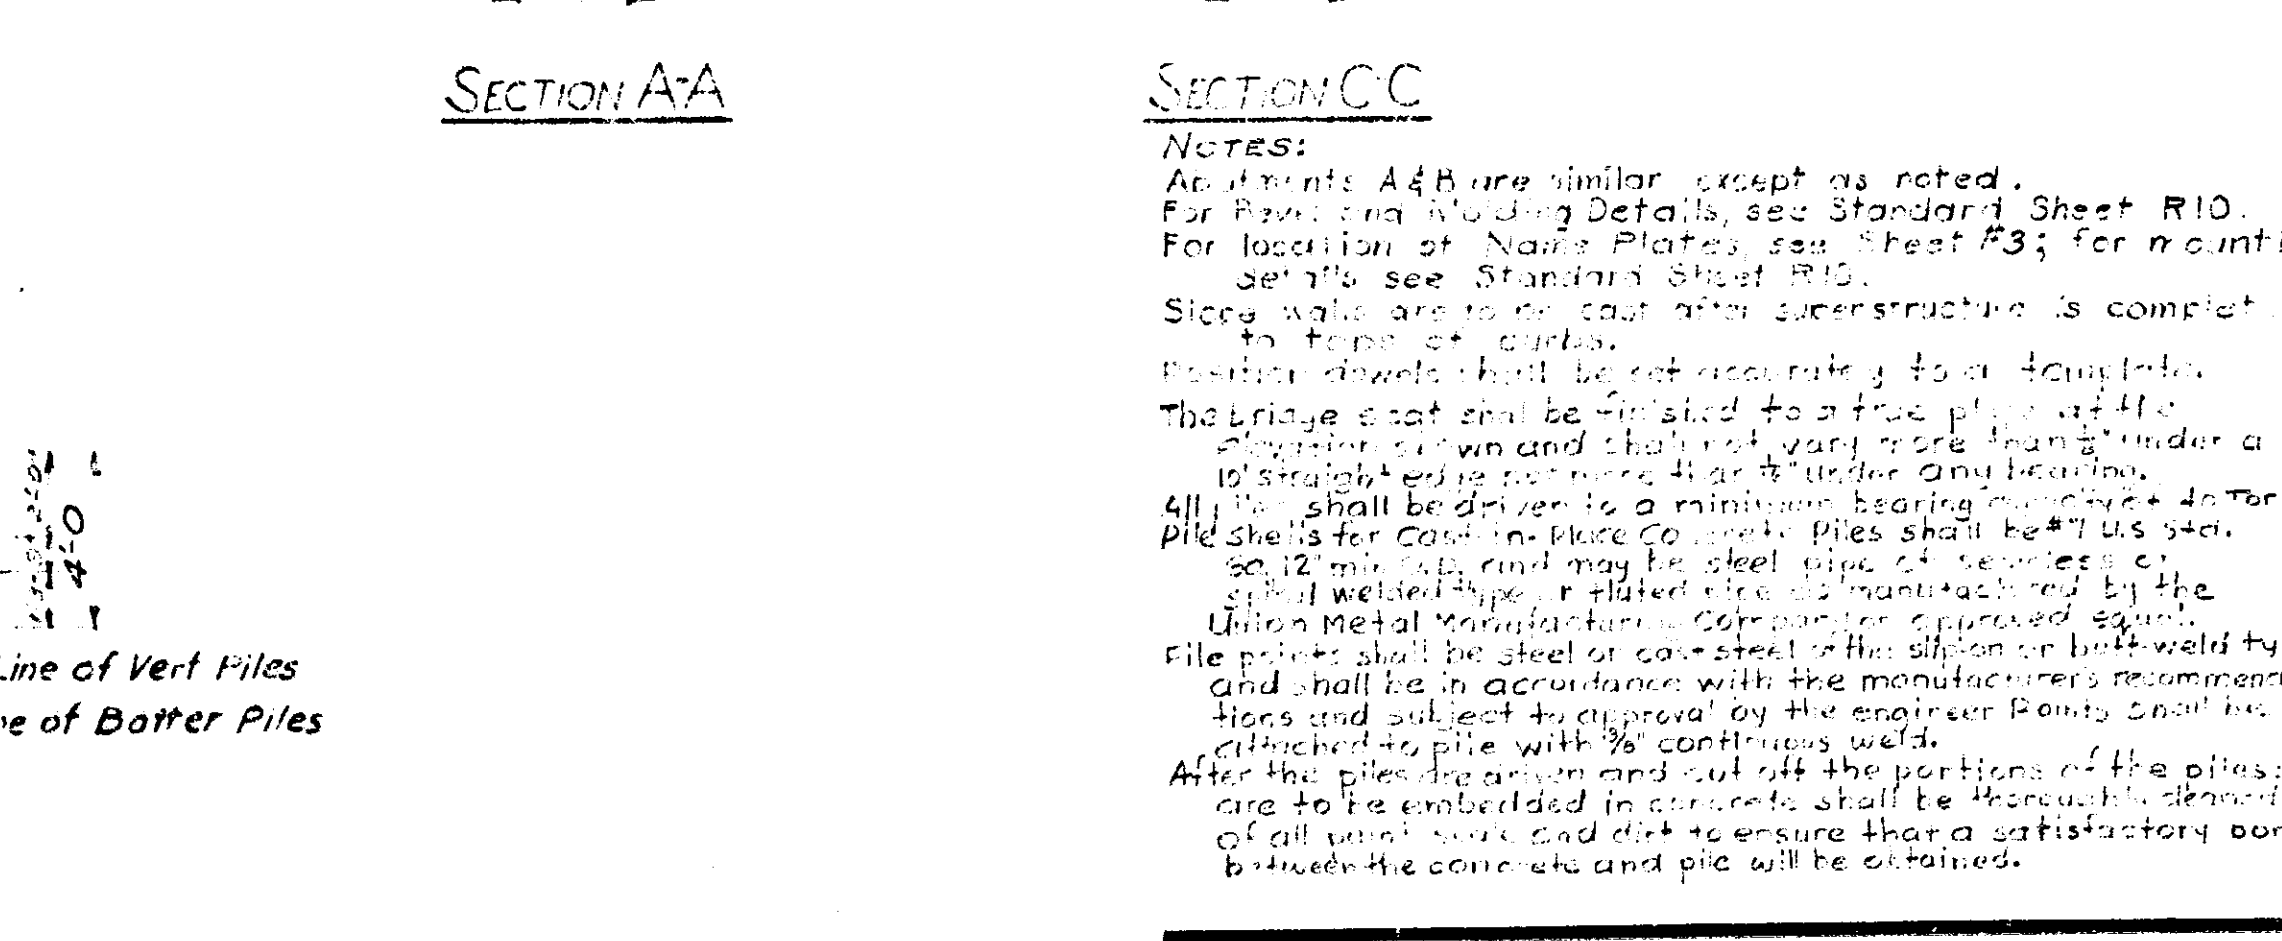 SECTION A-A
SECTION C-C
NOTES:
Abutments A & B are similar except as noted.
For Bevel and Molding Details, see Standard Sheet R10.
For location of Name Plates, see Sheet #3; for mounti
details see Standard Sheet R10.
walls are to be cast after superstructure is complet
to tops of curbs.
Position dowels shall be set accurately to a template.
The bridge seat shall be finished to a true plane at the
elevation shown and shall not vary more than ⅛" under a
10' straight edge nor more than under any bearing.
All piles shall be driven to a minimum bearing capacity of Ton
Pile Shells for Cast-in-Place Concrete Piles shall be #7 U.S Std.
Ga. 12" min O.D. and may be steel pipe of seamless or
spiral welded type or fluted pipe as manufactured by the
Union Metal Manufacturing Company or approved equal.
Pile points shall be steel or cast steel of the slip-on or butt-weld ty
and shall be in accordance with the manufacturer's recommend
tions and subject to approval by the engineer Points shall be
attached to pile with 3/8" continuous weld.
After the piles are driven and cut off the portions of the piles
are to be embedded in concrete shall be thoroughly cleaned
of all paint scale and dirt to ensure that a satisfactory bon
between the concrete and pile will be obtained.
4'-0
Line of Vert Piles
ne of Batter Piles